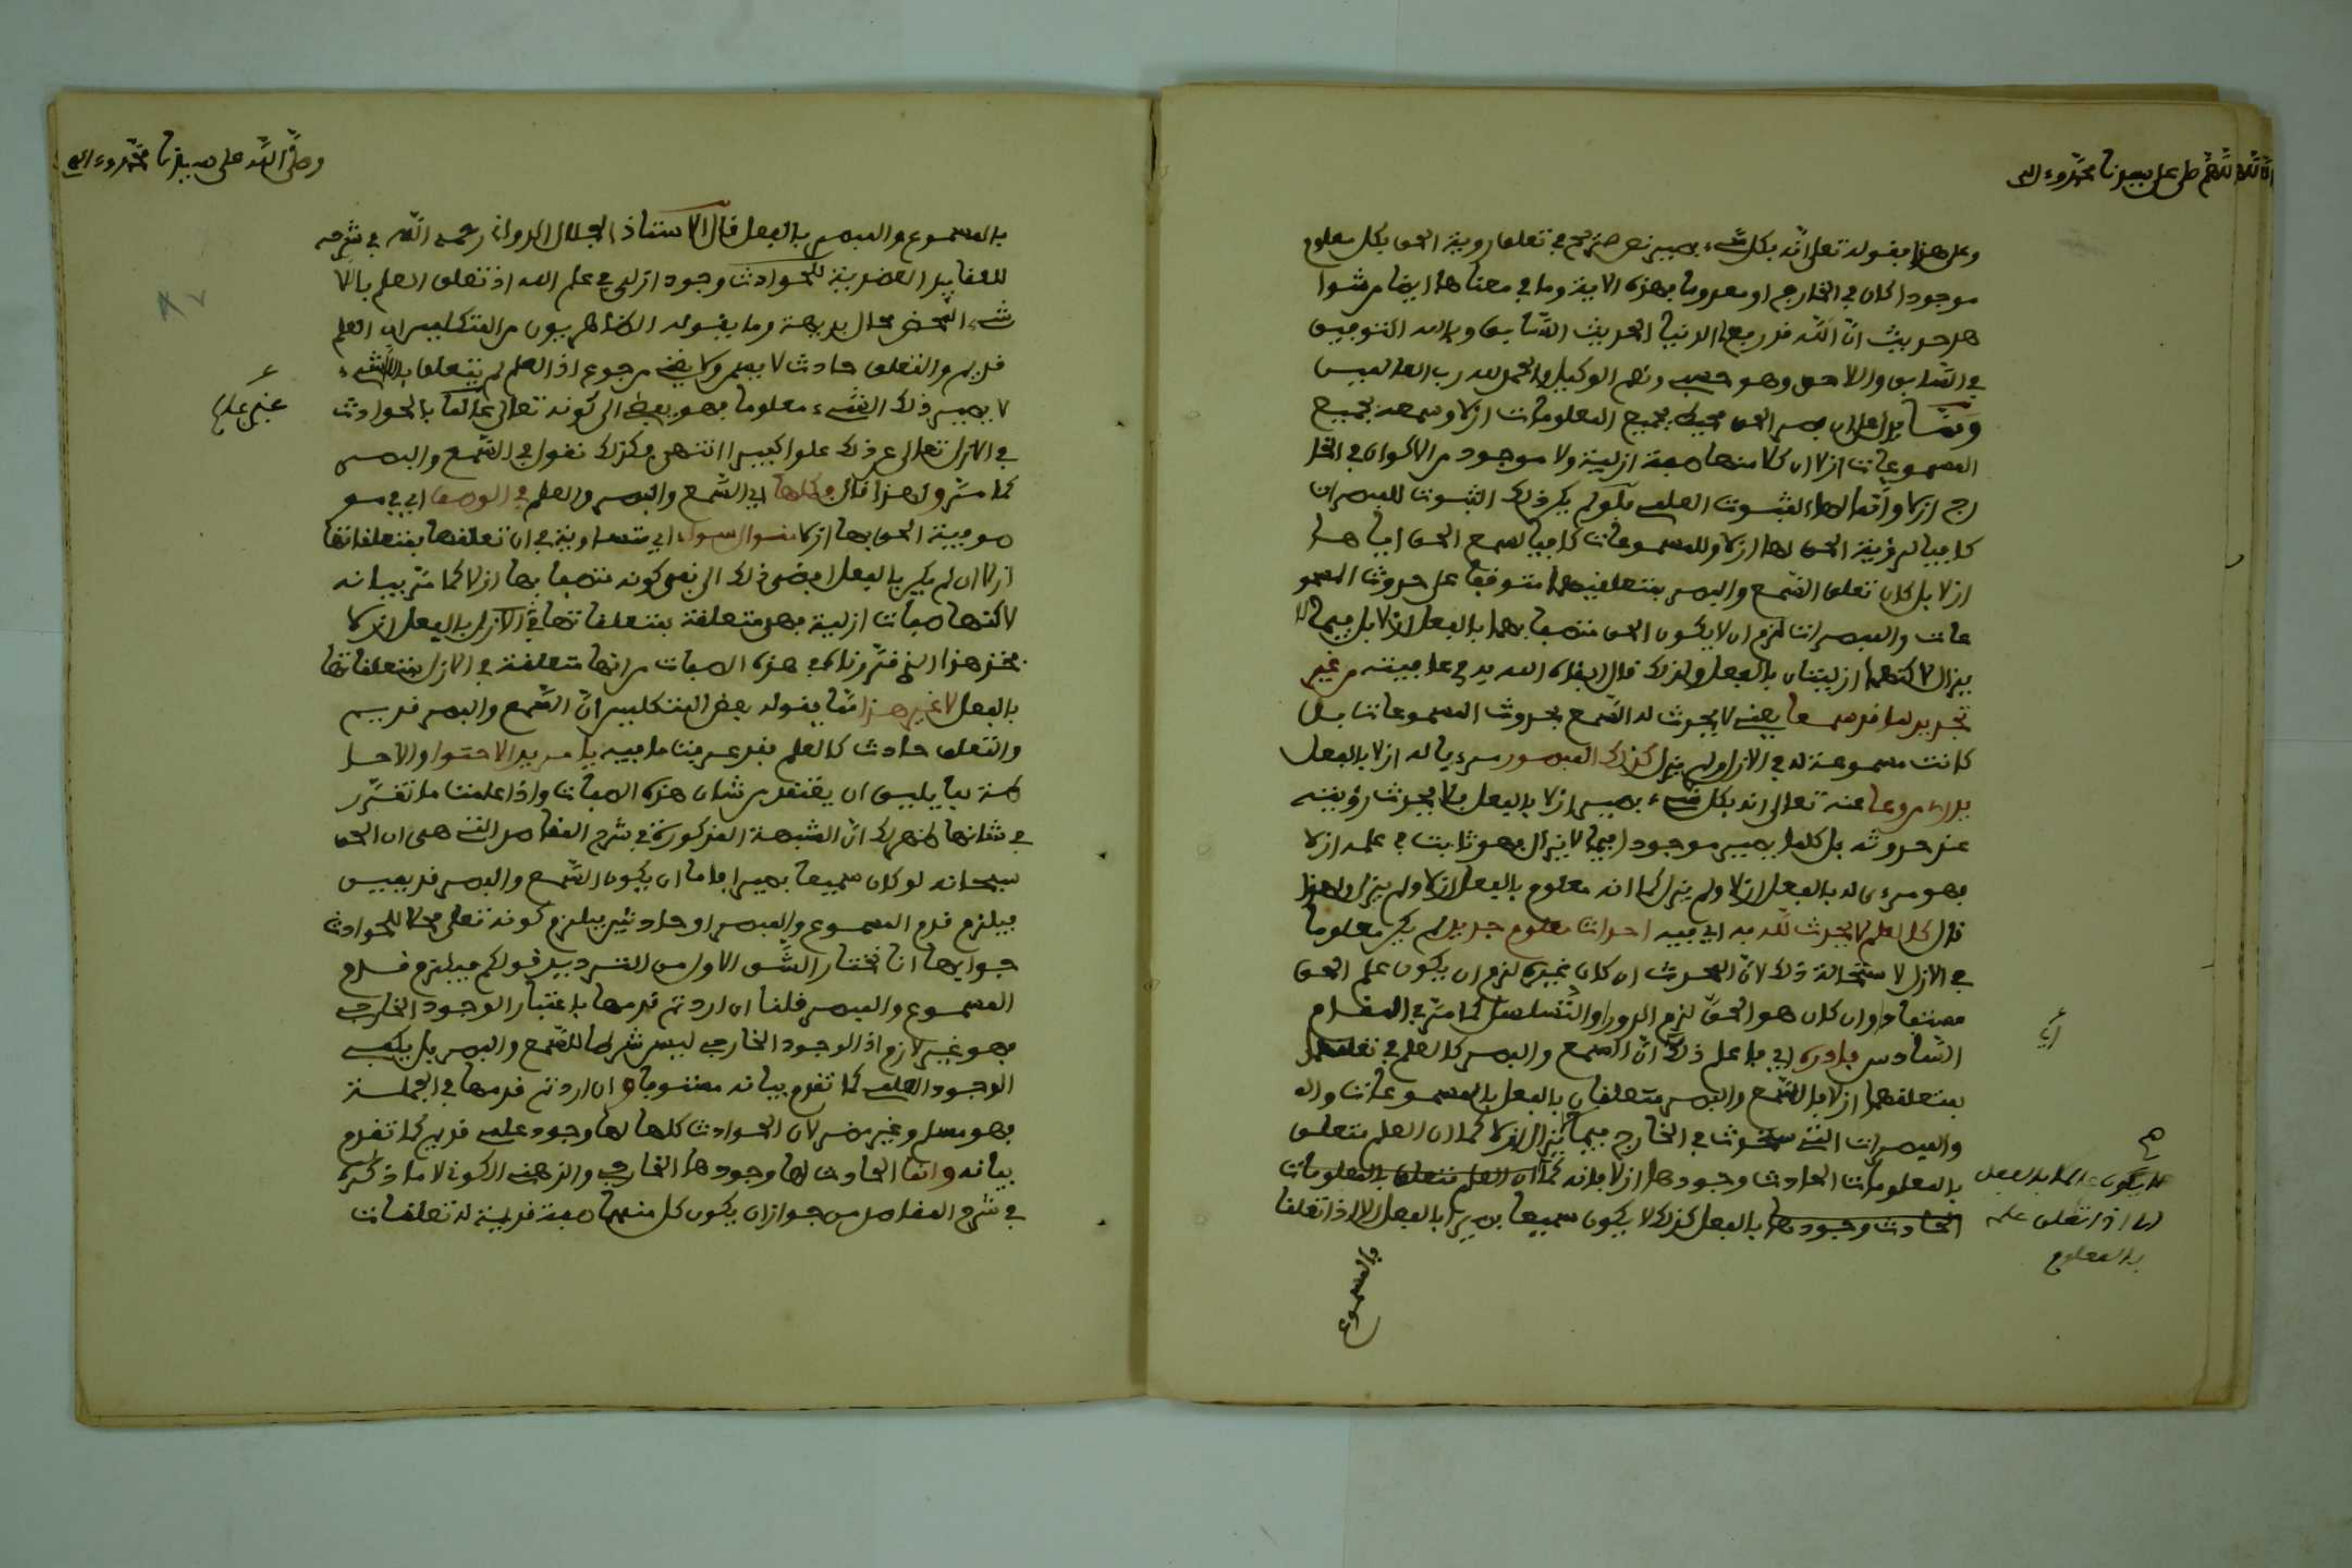 اللهم صل على سيدنا محمد وءاله
وعلى هذا بقوله تعلى انه بكل شىء بصير نص صريح في تعلق روية الحق بكل معلوم
موجودا كان في الخارج او معدوما بهذه الاية وما في معناها ايضا مرشوا
هد حديث ان الله قد رفع لي الدنيا الحديث السابق وبالله التوفيق
في السابق والاحق وهو حسبي ونعم الوكيل والحمد لله رب العالمين
ومما يدل على ان بصر الحق محيط بجميع المعلومات ازلا وسمعه بجميع
المسموعات ازلا ان كلا منهما صفة ازلية ولا موجود من الاكوان في الخا
رج ازلا وانما لها الثبوت العلمي فلو لم يكن ذلك الثبوت للمبصرات
كافيا لرؤية الحق لها ازلا وللمسموعات كافيا لسمع الحق اياها
ازلا بل كان تعلق السمع والبصر بمتعلقيهما متوقفا على حدوث المسمو
عات والمبصرات لزم ان لا يكون الحق متصفا بهما بالفعل ازلا بل فيما لا
يزال لاكنهما ازليتان بالفعل ولذلك قال ابقاه الله يد في عافيته من غير
تجديد لما قد سمعا يعني لا يحدث له السمع بحدوث المسموعات بل
كانت مسموعة له في الازل ولم يزل كذلك المبصور مرءيا له ازلا بالفعل
عنه تعالى انه بكل شىء بصير ازلا بالفعل فلا يحدث رؤيته
عند حدوثه بل كلما يصير موجودا فيما لا يزال فهو ثابت في علمه ازلا
فهو مرءى له بالفعل ازلا ولم يزل كما انه معلوم بالفعل ازلا ولم يزل ولهذا
قال كالعلم لا يحدث لله به اي فيه احداث معلوم جديد لم يكن معلوما
في الازل لاستحالة ذلك لان المحدث ان كان غيره لزم ان يكون علم الحق
مستفادا وان كان هو الحق لزم الدور او التسلسل كما مر في المقدم
السادس فادره اي فاعلم ذلك ان السمع والبصر كالعلم في تعلقهما
بمتعلقهما ازلا فالسمع والبصر متعلقان بالفعل بالمسموعات وال
والمبصرات التي ستحدث في الخارج فيما لا يزال ازلا كما ان العلم متعلق
بالمعلومات الحادث وجودها ازلا فانه كما ان العلم متعلق بالمعلومات
الحادث وجودها بالفعل كذلك لا يكون سميعا بصيرا بالفعل الا اذا تعلقا
اي
لا يكون عالما بالفعل
الا اذا تعلق علمه
بالمعلوم
بالمسموع
وصلى الله على سيدنا محمد وءاله
بالمسموع والمبصر بالفعل قال الاستاذ الجلال الدواني رحمه الله في شرحه
للعقايد العضدية للحوادث وجود ازلي في علم الله اذ تعلق العلم بالا
شىء المحض محال بديهة وما يقوله الظاهريون من المتكلمين ان العلم
قديم والتعلق حادث لا يسمن ولا يغني من جوع اذ العلم لم يتعلق بالشىء
لا يصير ذلك الشىء معلوما فهو يفضي الى كونه تعالى عالما بالحوادث
في الازل تعالى عن ذلك علوا كبيرا انتهى وكذلك نقول في السمع والبصر
كما مر ولهذا قال وكلها اي السمع والبصر والعلم في الوصف اي في مو
صوفية الحق بها ازلا سواء اي متساوية في ان تعلقها بمتعلقاتها
ازلا ان لم يكن بالفعل افضى ذلك الى نفي كونه متصفا بها ازلا كما مر بيانه
لاكنها صفات ازلية فهي متعلقة بمتعلقاتها في الازل بالفعل ازلا
فخذ هذا الذي قررناه في هذه الصفات من انها متعلقة في الازل بمتعلقاتها
بالفعل لا غير هذا مما يقوله بعض المتكلمين ان السمع والبصر قديم
والتعلق حادث كالعلم فقد عرفت ما فيه يا مريد الاحتوا والاحا
طة بما يليق ان يعتقد من شان هذه الصفات واذا علمت ما تقرر
في شانها ظهر لك ان الشبهة المذكورة في شرح المقاصد التي هي ان الحق
سبحانه لو كان سميعا بصيرا فاما ان يكون السمع والبصر قديمين
فيلزم قدم المسموع والمبصر او حادثين فيلزم كونه تعلى محلا للحوادث
جوابها انا نختار الشق الاول من الترديد قولكم فيلزم قدم
المسموع والمبصر قلنا ان اردتم قدمها باعتبار الوجود الخارجي
فهو غير لازم اذ الوجود الخارجي ليس شرطا للسمع والبصر بل يكفي
الوجود العلمي كما تقدم بيانه مستوفا وان اردتم قدمها في الجملة
فهو مسلم وغير مضر لان الحوادث كلها لها وجود علمي قديم كما تقدم
بيانه وانما الحادث لها وجودها الخارجي والذهني الكوني لا ما ذكره
في شرح المقاصد من جواز ان يكون كل منهما صفة قديمة له تعلقات